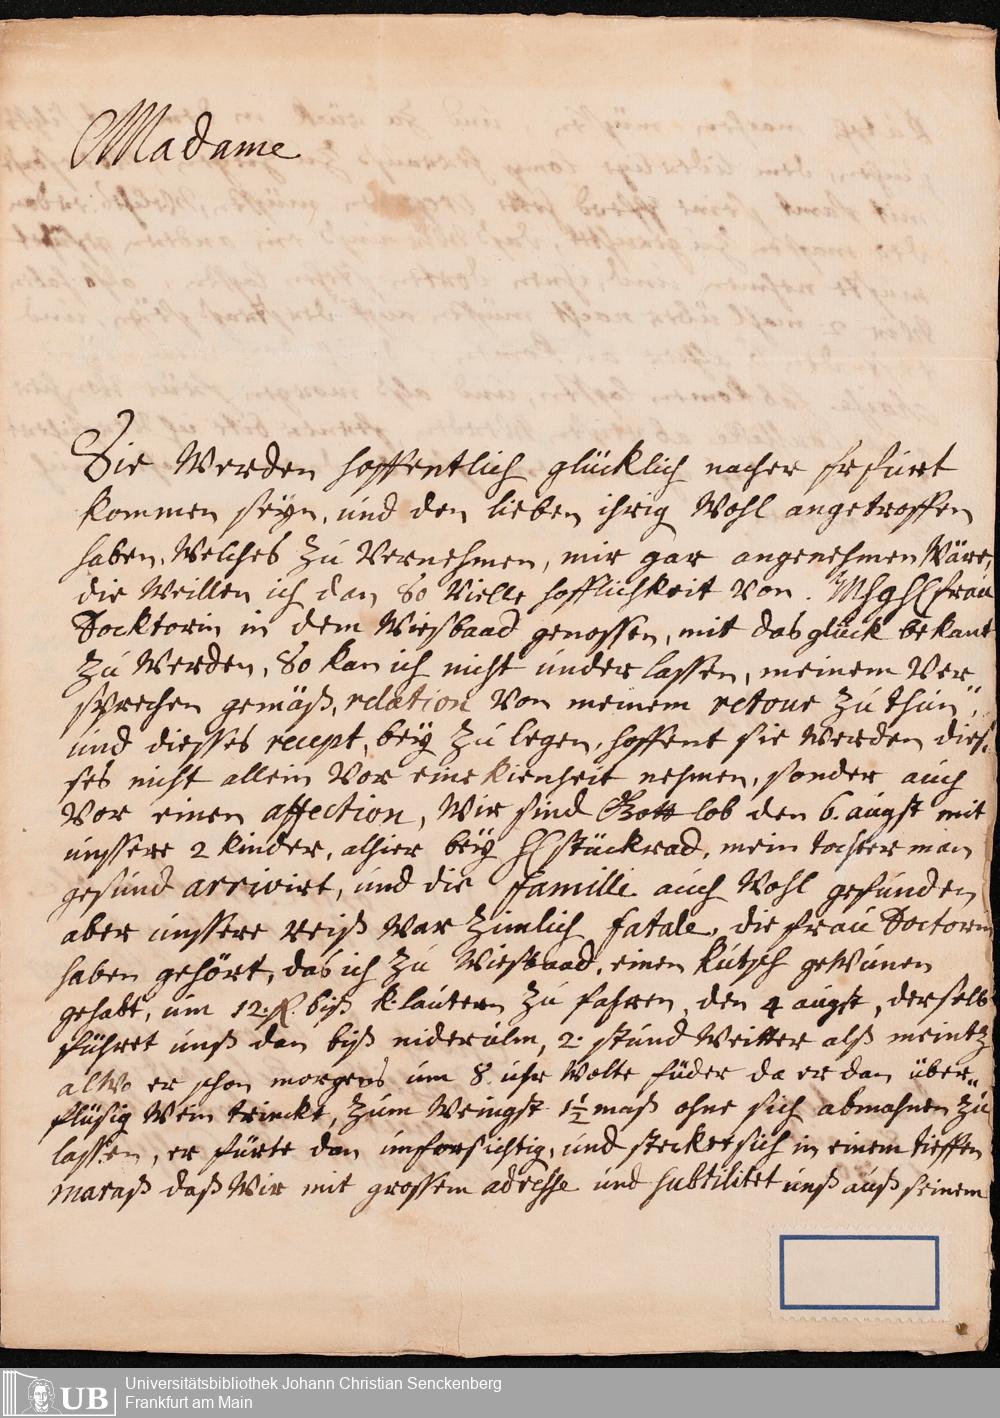 Madame
Sie Werden hoffentlich glücklich nacher Erfurt
kommen seyn, und den lieben ihrig Wohl angetroffen
haben, Welches zu Vernehmen, mir gar angenehmen Wäre,
die Weillen ich dan so Vielle hofflichkeit von Mhghl frau
Docktorin in dem Wiesbaad genossen, mit das glück bekant
zu Werden, So kan ich nicht under lassen, meinem Ver
sprechen gemäß, relation von meinem retour zu thun,
und diesses recept, bey zu legen, hoffent sie Werden dies-
ses nicht allein Vor eine kienheit nehmen, sonder auch
Vor einen affection, Wir sind Gott lob den 6. augst mit
unssere 2 kinder, alhier bey H stückrad, mein tochter man
gesund arrivirt, und die famille auch Wohl gefunden
aber unssere reiß War Zimlich fatale, die frau Doctorin
haben gehört, das ich zu Wiesbaad, einen kutsch gewunen
gehabt, um 12 fl. biß k. lautern zu fahren, den 4 augst, derselb
führet unß dan biß niderulm, 2. stund Weitter alß meintz
alwo er schon morgens um 8. uhr Wolte füder da er dan über-
flüsig Wein trinckt, zum Wenigst 1½ maß ohne sich abmahnen zu
lassen, er fürte dan unforsichtig, und stecket sich in einem tieffen
maraß daß Wir mit grossem adresse und subtilitet unß auß seinem
UB Universitätsbibliothek Johann Christian Senckenberg
Frankfurt am Main